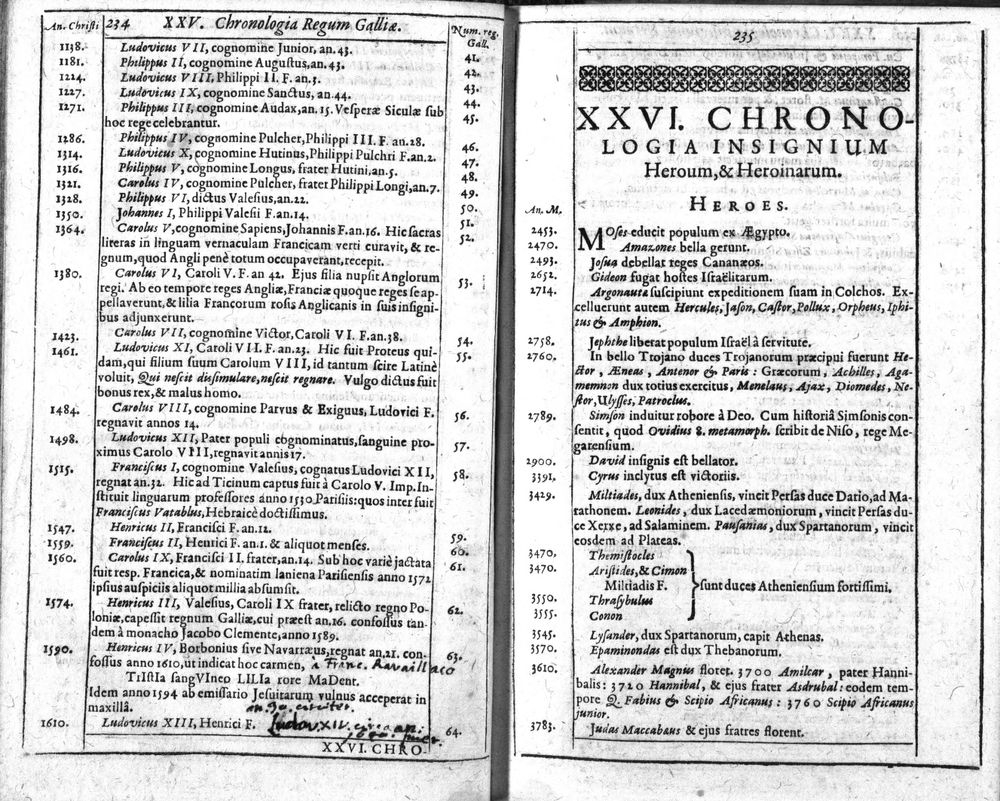 An. Christi 234 XXV. Chronologia Regum Galliæ. Num. reg. Gall.
1138. Ludovicus VII, cognomine Junior, an. 43. 41.
1181. Philippus II, cognomine Augustus, an. 43. 42.
1224. Ludovicus VIII, Philippi II. F. an. 3. 43.
1227. Ludovicus IX, cognomine Sanctus, an. 44. 44.
1271. Philippus III, cognomine Audax, an. 15. Vesperæ Siculæ sub 45.
hoc rege celebrantur.
1286. Philippus IV, cognomine Pulcher, Philippi III. F. an. 28. 46.
1314. Ludovicus X, cognomine Hutinus, Philippi Pulchri F. an. 2. 47.
1316. Philippus V, cognomine Longus, frater Hutini, an. 5. 48.
1321. Carolus IV, cognomine Pulcher, frater Philippi Longi, an. 7. 49.
1328. Philippus VI, dictus Valesius, an. 22. 50.
1350. Johannes I, Philippi Valesii F. an. 14. 51.
1364. Carolus V, cognomine Sapiens, Johannis F. an. 16. Hic sacras 52.
literas in linguam vernaculam Francicam verti curavit, & re-
gnum, quod Angli penè totum occupaverant, recepit.
1380. Carolus VI, Caroli V. F. an 42. Ejus filia nupsit Anglorum 53.
regi. Ab eo tempore reges Angliæ, Franciæ quoque reges se ap-
pellaverunt, & lilia Francorum rosis Anglicanis in suis insigni-
bus adjunxerunt.
1423. Carolus VII, cognomine Victor, Caroli VI. F. an. 38. 54.
1461. Ludovicus XI, Caroli VII. F. an. 23. Hic fuit Proteus qui- 55.
dam, qui filium suum Carolum VIII, id tantum scire Latinè
voluit, Qui nescit dissimulare, nescit regnare. Vulgo dictus fuit
bonus rex, & malus homo.
1484. Carolus VIII, cognomine Parvus & Exiguus, Ludovici F. 56.
regnavit annos 14.
1498. Ludovicus XII, Pater populi cognominatus, sanguine pro- 57.
ximus Carolo VIII, regnavit annis 17.
1515. Franciscus I, cognomine Valesius, cognatus Ludovici XII, 58.
regnat an. 32. Hic ad Ticinum captus fuit à Carolo V. Imp. In-
stituit linguarum professores anno 1530 Parisiis: quos inter fuit
Franciscus Vatablus, Hebraicè doctissimus.
1547. Henricus II, Francisci F. an. 12. 59.
1559. Franciscus II, Henrici F. an. 1. & aliquot menses. 60.
1560. Carolus IX, Francisci II. frater, an. 14. Sub hoc variè jactata 61.
fuit resp. Francica, & nominatim laniena Parisiensis anno 1572
ipsius auspiciis aliquot millia absumsit.
1574. Henricus III, Valesius, Caroli IX frater, relicto regno Po- 62.
loniæ, capessit regnum Galliæ, cui præest an. 16. confossus tan-
dem à monacho Jacobo Clemente, anno 1589.
1590. Henricus IV, Borbonius sive Navarræus, regnat an. 21. con- 63.
fossus anno 1610, ut indicat hoc carmen, a Franc. Ravaillaco
TrIstIa sangVIneo LILIa rore MaDent.
Idem anno 1594 ab emissario Jesuitarum vulnus acceperat in
maxillâ.
1610. Ludovicus XIII, Henrici F. Ludov. XIV. 64.
XXVI. CHRO-
235
XXVI. CHRONO-
LOGIA INSIGNIUM
Heroum, & Heroinarum.
HEROES.
An. M.
2453. MOses educit populum ex Ægypto.
2470. Amazones bella gerunt.
2493. Josua debellat reges Cananæos.
2652. Gideon fugat hostes Israëlitarum.
2714. Argonautæ suscipiunt expeditionem suam in Colchos. Ex-
celluerunt autem Hercules, Jason, Castor, Pollux, Orpheus, Iphi-
tus & Amphion.
2758. Jephthe liberat populum Israël à servitute.
2760. In bello Trojano duces Trojanorum præcipui fuerunt He-
ctor, Æneas, Antenor & Paris: Græcorum, Achilles, Aga-
memnon dux totius exercitus, Menelaus, Ajax, Diomedes, Ne-
stor, Ulysses, Patroclus.
2789. Simson induitur robore à Deo. Cum historiâ Simsonis con-
sentit, quod Ovidius 8. metamorph. scribit de Niso, rege Me-
garensium.
2900. David insignis est bellator.
3391. Cyrus inclytus est victoriis.
3429. Miltiades, dux Atheniensis, vincit Persas duce Dario, ad Ma-
rathonem. Leonides, dux Lacedæmoniorum, vincit Persas du-
ce Xerxe, ad Salaminem. Pausanias, dux Spartanorum, vincit
eosdem ad Plateas.
3470. Themistocles
3470. Aristides, & Cimon
Miltiadis F. sunt duces Atheniensium fortissimi.
3550. Thrasybulus
3555. Conon
3545. Lysander, dux Spartanorum, capit Athenas.
3570. Epaminondas est dux Thebanorum.
3620. Alexander Magnus floret. 3700 Amilcar, pater Hanni-
balis: 3720 Hannibal, & ejus frater Asdrubal: eodem tem-
pore Q. Fabius & Scipio Africanus: 3760 Scipio Africanus
junior.
3783. Judas Maccabæus & ejus fratres florent.